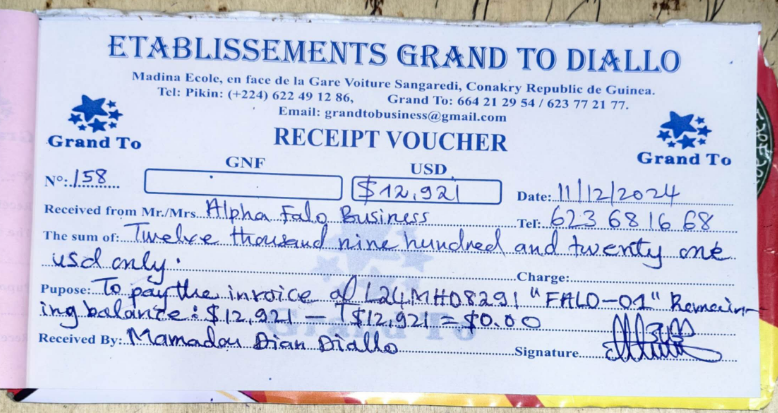 ETABLISSEMENTS GRAND TO DIALLO
Madina Ecole, en face de la Gare Voiture Sangaredi, Conakry Republic de Guinea.
Tel: Pikin: (+224) 622 49 12 86, Grand To: 664 21 29 54 / 623 77 21 77.
Email: grandtobusiness@gmail.com
Grand To RECEIPT VOUCHER Grand To
GNF USD
N°: 158 $12,921 Date: 11/12/2024
Received from Mr./Mrs. Alpha Falo Business Tel: 623 68 16 68
The sum of: Twelve thousand nine hundred and twenty one
usd only. Charge:
Pupose: To pay the invoice of L24MH08291 "FALO-01" Remain-
ing balance: $12,921 - $12,921 = $0.00
Received By: Mamadou Dian Diallo Signature